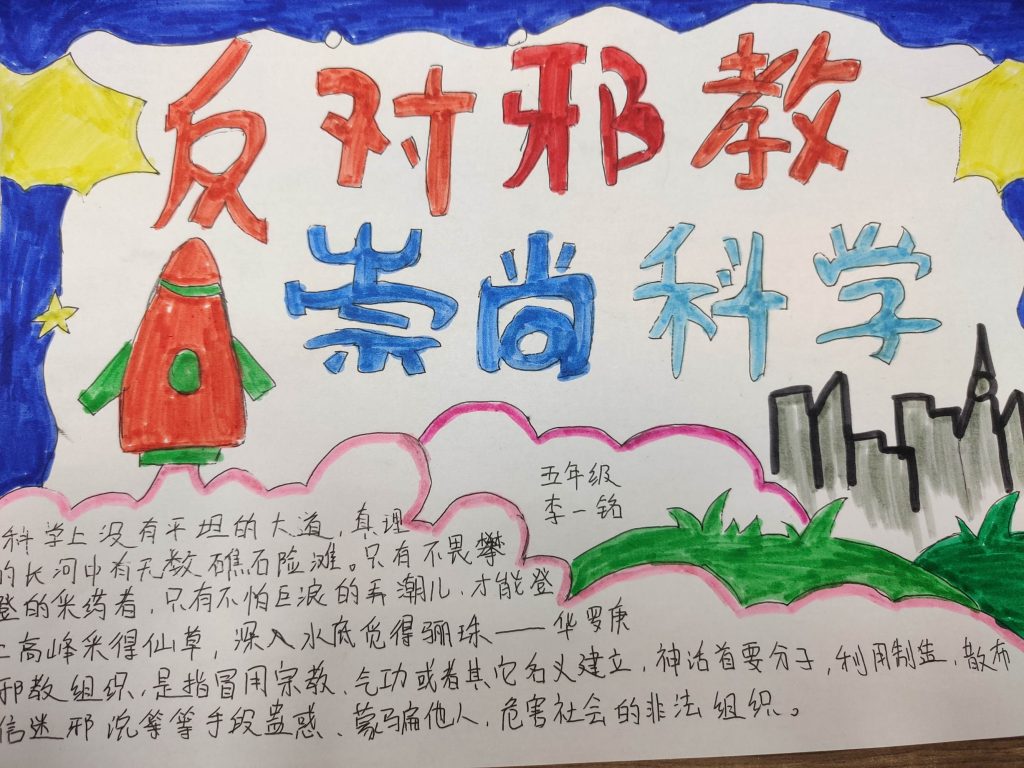 反对邪教
崇尚科学
五年级
李一铭
科学上没有平坦的大道，真理
的长河中有无数礁石险滩。只有不畏攀
登的采药者，只有不怕巨浪的弄潮儿，才能登
上高峰采得仙草，深入水底觅得骊珠——华罗庚
邪教组织，是指冒用宗教、气功或者其它名义建立，神话首要分子，利用制造，散布
信迷邪说等等手段蛊惑、蒙骗他人，危害社会的非法组织。